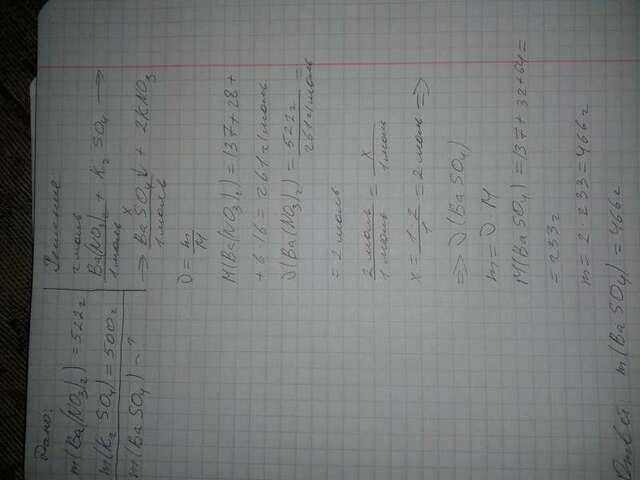 Дано:
m(Ba(NO3)2) = 522 г
m(K2SO4) = 500 г
m(BaSO4) - ?
Решение
2 моль
Ba(NO3)2 + K2SO4 →
1 моль x
→ BaSO4↓ + 2KNO3
1 моль
ν = m/M
M(Ba(NO3)2) = 137 + 28 +
+ 6·16 = 261 г/моль
ν(Ba(NO3)2) = 522 г / 261 г/моль =
= 2 моль
2 моль / 1 моль = x / 1 моль
x = 1·2 / 1 = 2 моль ⇒
⇒ ν(BaSO4)
m = ν·M
M(BaSO4) = 137 + 32 + 64 =
= 233 г
m = 2·233 = 466 г
Ответ: m(BaSO4) = 466 г